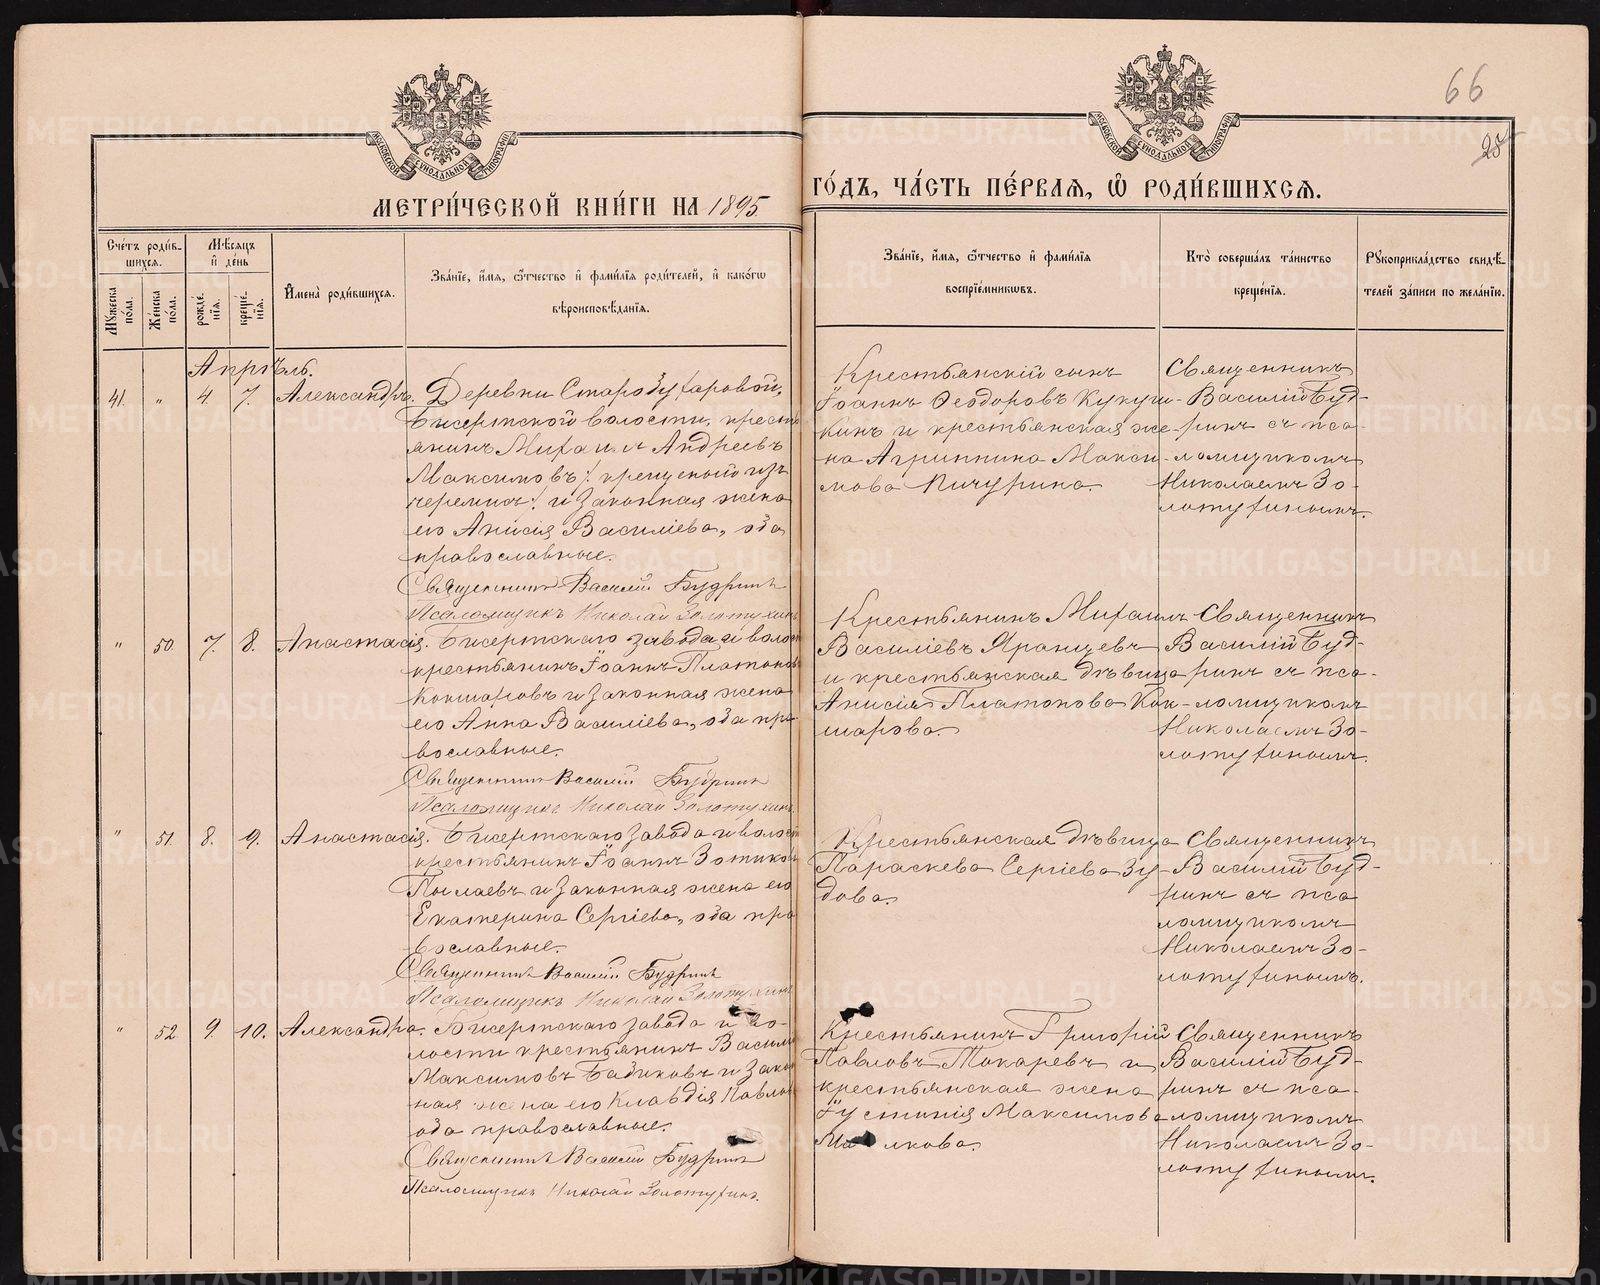 66
28
МЕТРИ́ЧЕСКОЙ КНИ́ГИ НА 1895
ГО́ДЪ, ЧА́СТЬ ПЕ́РВАЯ, Ѡ҆ РОДИ́ВШИХСЯ.
Сче́тъ роди́в-
шихся.
Мѣ́сяцъ
и҆ де́нь
Мꙋ́жеска
по́ла.
Же́нска
по́ла.
рожде́-
нїѧ.
креще́-
нїѧ.
И҆мена̀ роди́вшихся.
Зва́нїе, и҆́мя, ѻ҆́тчество и҆ фамі́лїя роди́телей, и҆ како́гѡ
вѣроисповѣ́данїя.
Зва́нїе, и҆́мя, ѻ҆́тчество и҆ фамі́лїя
воспрїе́мникѡвъ.
Кто̀ соверша́лъ та́инство
креще́нїя.
Рꙋкоприкла́дство свидѣ́-
телей за́писи по жела́нїю.
Апрѣль.
41. " 4. 7. Александръ.
Деревни Старобухаровой,
Бисертской волости, кресть
янинъ Михаилъ Андреевъ
Максимовъ /: крещеный изъ
черемисъ :/ и законная жена
его Анисія Василіева, оба
православные.
Священникъ Василій Будринъ
Псаломщикъ Николай Золотухинъ
Крестьянскій сынъ
Іоаннъ Ѳеодоровъ Кукуш-
кинъ и крестьянская же-
на Агриппина Макси-
мова Пичурина.
Священникъ
Василій Буд-
ринъ съ пса-
ломщикомъ
Николаемъ Зо-
лотухинымъ.
" 50. 7. 8. Анастасія.
Бисертскаго завода и волости
крестьянинъ Іоаннъ Платоновъ
Кокшаровъ и законная жена
его Анна Василіева, оба пра
вославные.
Священникъ Василій Будринъ
Псаломщикъ Николай Золотухинъ.
Крестьянинъ Михаилъ
Василіевъ Яранцевъ
и крестьянская дѣвица
Анисія Платонова Кок-
шарова.
Священникъ
Василій Буд-
ринъ съ пса-
ломщикомъ
Николаемъ Зо-
лотухинымъ.
" 51. 8. 9. Анастасія.
Бисертскаго завода и волости
крестьянинъ Іоаннъ Зотиковъ
Пылаевъ и законная жена его
Екатерина Сергіева, оба пра
вославные.
Священникъ Василій Будринъ
Псаломщикъ Николай Золотухинъ
Крестьянская дѣвица
Параскева Сергіева Зу-
дова.
Священникъ
Василій Буд-
ринъ съ пса
ломщикомъ
Николаемъ Зо-
лотухинымъ.
" 52 9. 10. Александра.
Бисертскаго завода и во-
лости крестьянинъ Васили
Максимовъ Бабиковъ и закон
ная жена его Клавдія Павлова
оба православные.
Священникъ Василій Будринъ
Псаломщикъ Николай Золотухинъ.
Крестьянинъ Григорій
Павловъ Токаревъ и
крестьянская жена
Іустинія Максимова
лкова.
Священникъ
Василій Буд-
ринъ съ пса-
ломщикомъ
Николаемъ Зо-
лотухинымъ.
METRIKI.GASO-URAL.RU